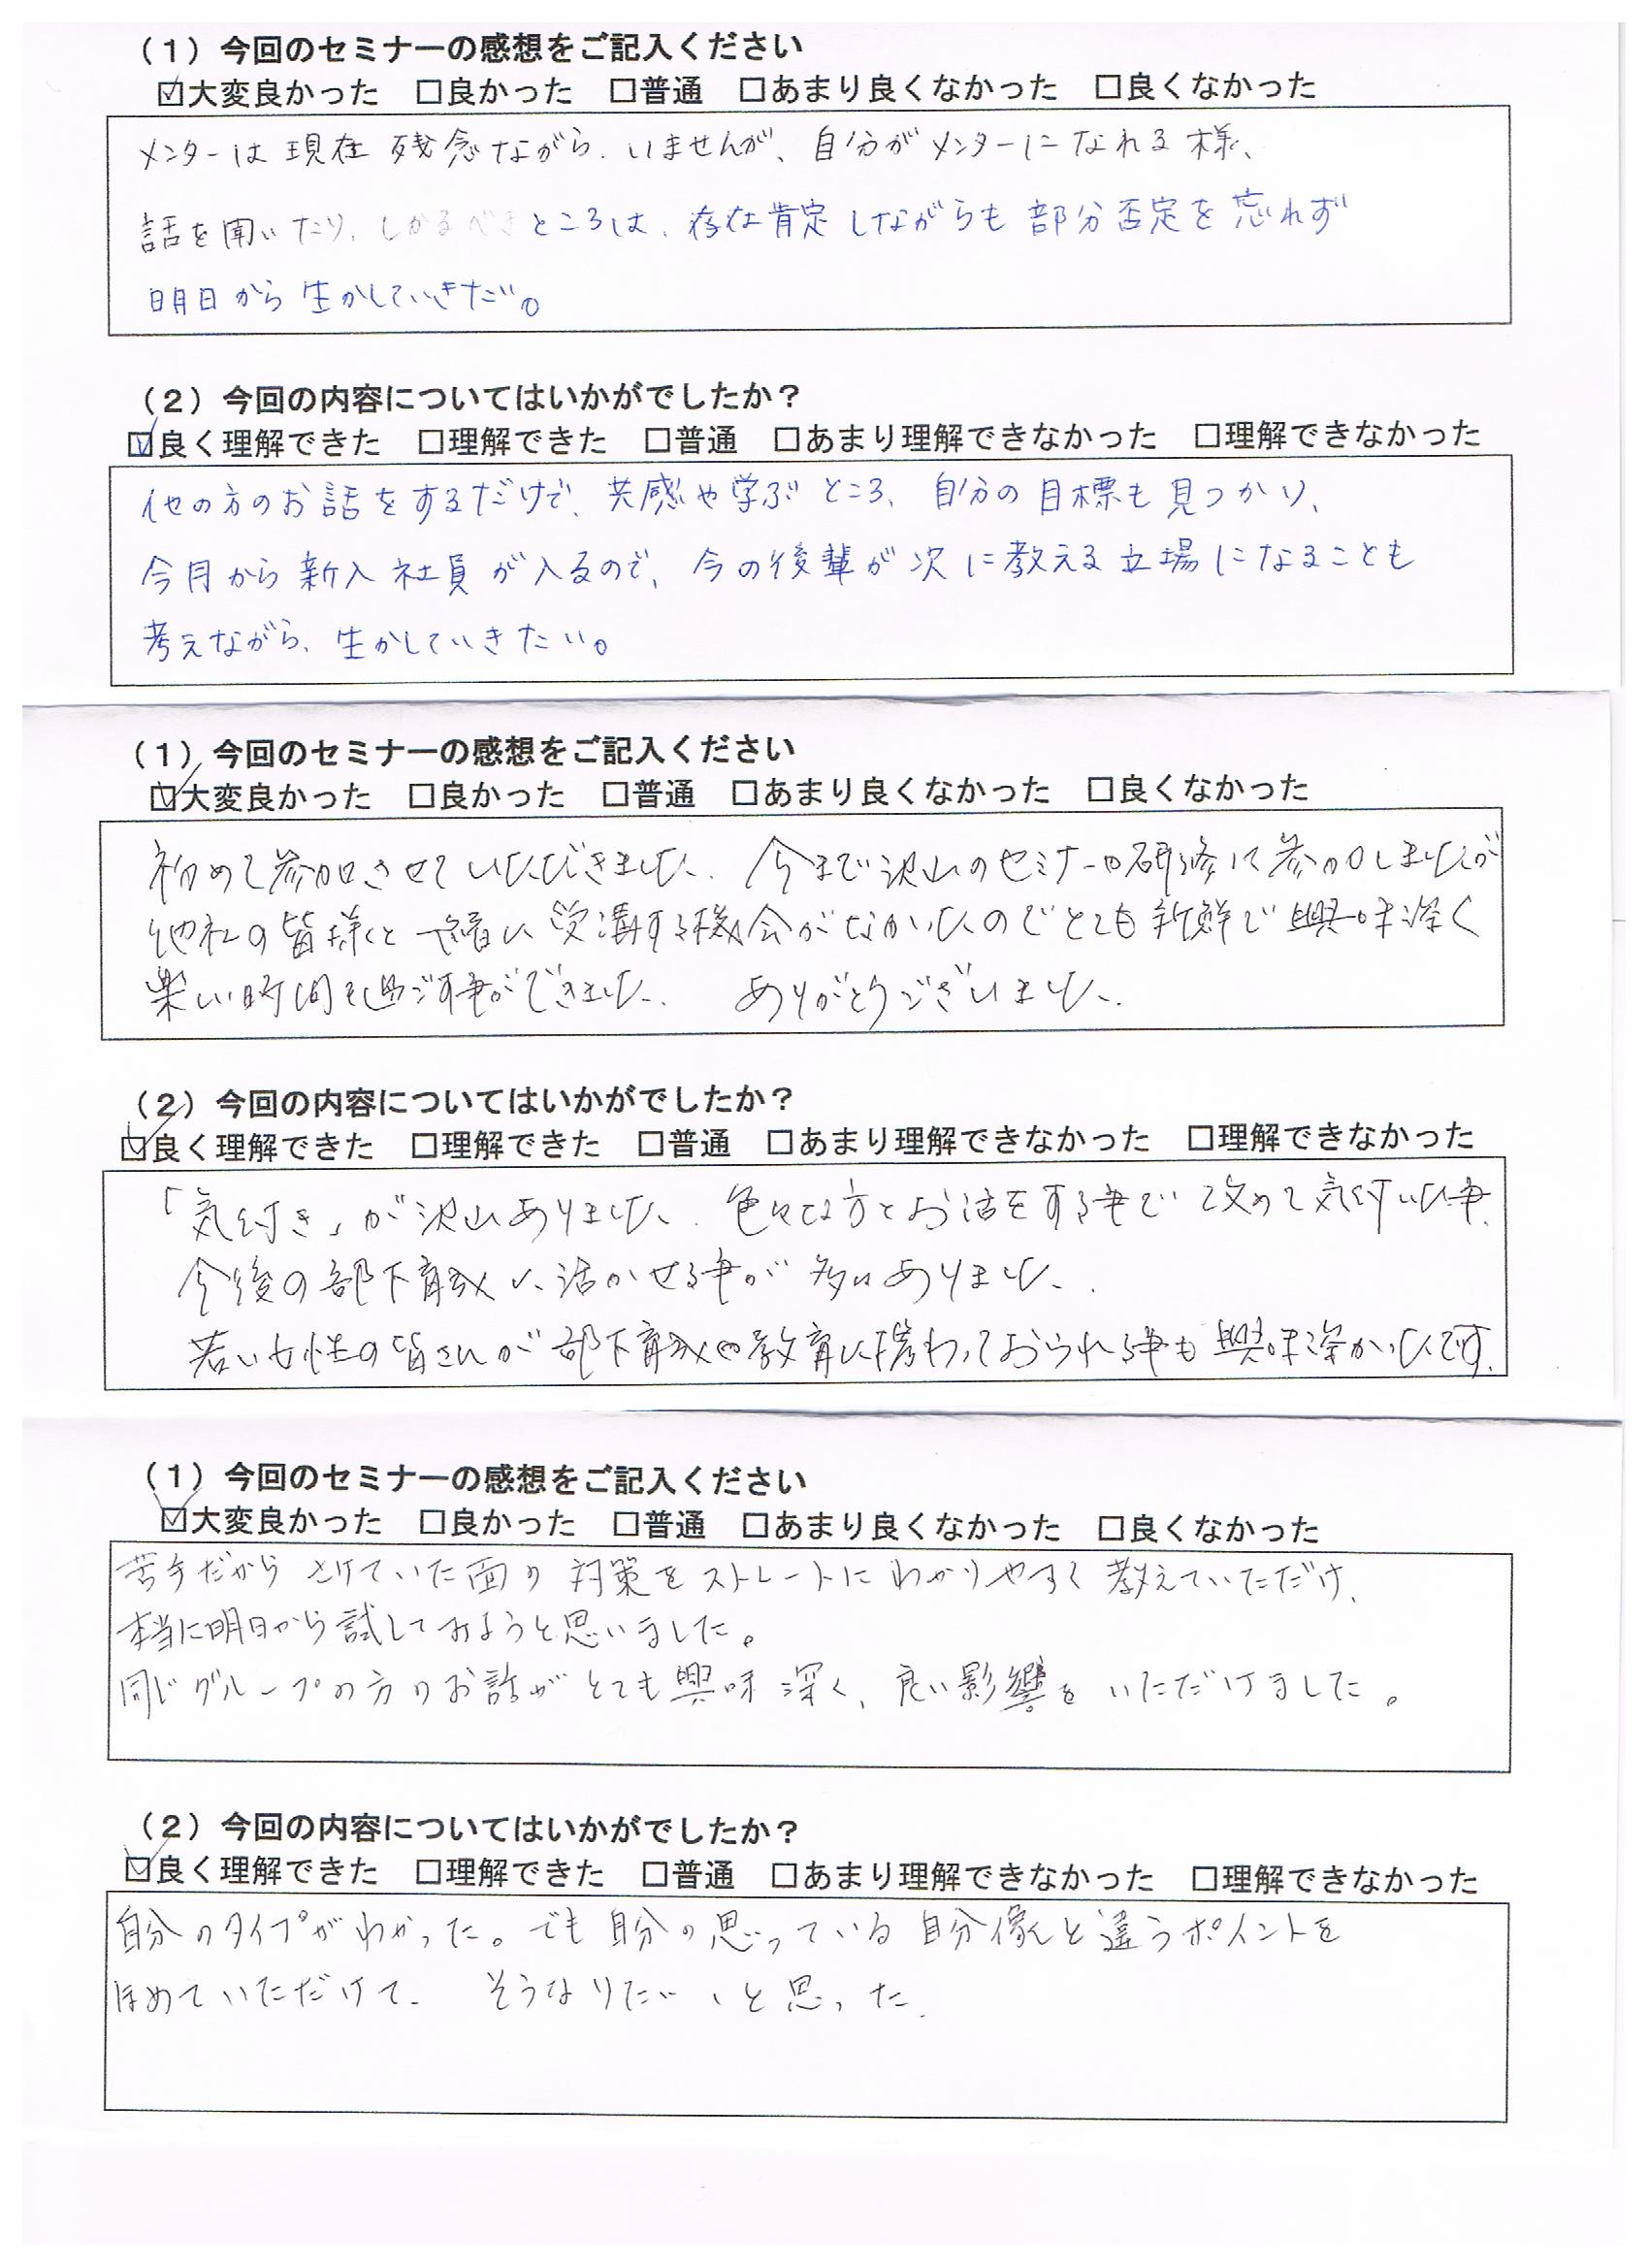 （１）今回のセミナーの感想をご記入ください
☑大変良かった　□良かった　□普通　□あまり良くなかった　□良くなかった
メンターは現在残念ながら、いませんが、自分がメンターになれる様、
話を聞いたり、しかるべきところは、存在肯定しながらも部分否定を忘れず
明日から生かしていきたい。
（２）今回の内容についてはいかがでしたか？
☑良く理解できた　□理解できた　□普通　□あまり理解できなかった　□理解できなかった
他の方のお話をするだけで、共感や学ぶところ、自分の目標も見つかり、
今月から新入社員が入るので、今の後輩が次に教える立場になることも
考えながら、生かしていきたい。
（１）今回のセミナーの感想をご記入ください
☑大変良かった　□良かった　□普通　□あまり良くなかった　□良くなかった
初めて参加させていただきました。今まで沢山のセミナーや研修に参加しましたが
他社の皆様と一緒に受講する機会がなかったのでとても新鮮で興味深く
楽しい時間を過ごす事ができました。ありがとうございました。
（２）今回の内容についてはいかがでしたか？
☑良く理解できた　□理解できた　□普通　□あまり理解できなかった　□理解できなかった
「気付き」が沢山ありました。色々な方とお話をする事で改めて気付いた事、
今後の部下育成に活かせる事が多くありました。
若い女性の皆さんが部下育成や教育に携わっておられる事も興味深かったです。
（１）今回のセミナーの感想をご記入ください
☑大変良かった　□良かった　□普通　□あまり良くなかった　□良くなかった
苦手だからさけていた面の対策をストレートにわかりやすく教えていただけ、
本当に明日から試してみようと思いました。
同じグループの方のお話がとても興味深く、良い影響をいただけました。
（２）今回の内容についてはいかがでしたか？
☑良く理解できた　□理解できた　□普通　□あまり理解できなかった　□理解できなかった
自分のタイプがわかった。でも自分の思っている自分像と違うポイントを
ほめていただけて、そうなりたい、と思った。